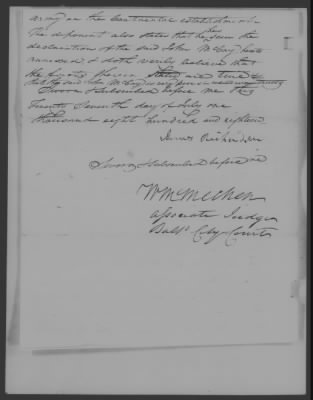 army on the Continental establishment
The deponent also states that he has seen the
declaration of the said John McCoy hereto
annexed & doth verily believe that
the facts therein stated are true &
that the said John McCoy is very poor
Sworn & subscribed before me this
Twenty Seventh day of July one
thousand eight hundred and eighteen
James
Sworn & subscribed before me
Wm McMechen
associate Judge
Balt. City Court